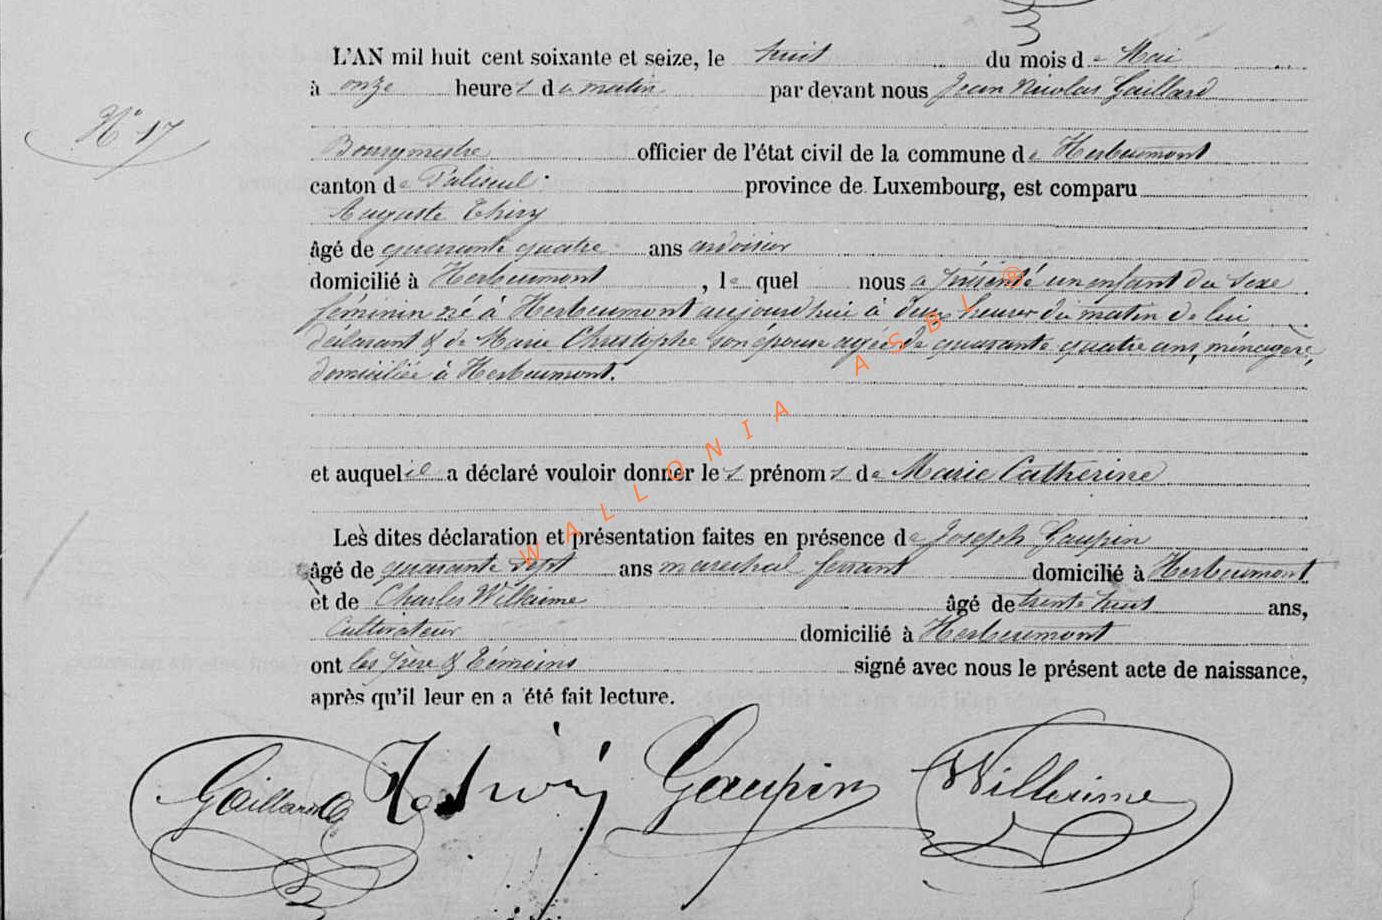 L'AN mil huit cent soixante et seize, le huit du mois de Mai
à onze heures du matin par devant nous Jean Nicolas Gaillard
N° 17
Bourgmestre officier de l'état civil de la commune de Herbeumont
canton de Paliseul province de Luxembourg, est comparu
Auguste Thiry
âgé de quarante quatre ans ardoisier
domicilié à Herbeumont, lequel nous a présenté un enfant du sexe
féminin né à Herbeumont aujourd'hui à deux heures du matin de lui
déclarant & de Marie Christophe son épouse agée de quarante quatre ans, ménagère,
domiciliée à Herbeumont.
et auquel il a déclaré vouloir donner les prénoms de Marie Catherine
Les dites déclaration et présentation faites en présence de Joseph Gaupin
âgé de quarante sept ans marechal ferrant domicilié à Herbeumont
et de Charles Willaime âgé de trente huit ans,
Cultivateur domicilié à Herbeumont
ont les père & témoins signé avec nous le présent acte de naissance,
après qu'il leur en a été fait lecture.
Gaillard Gaupin Willaime
WALLONIA ASBL ®